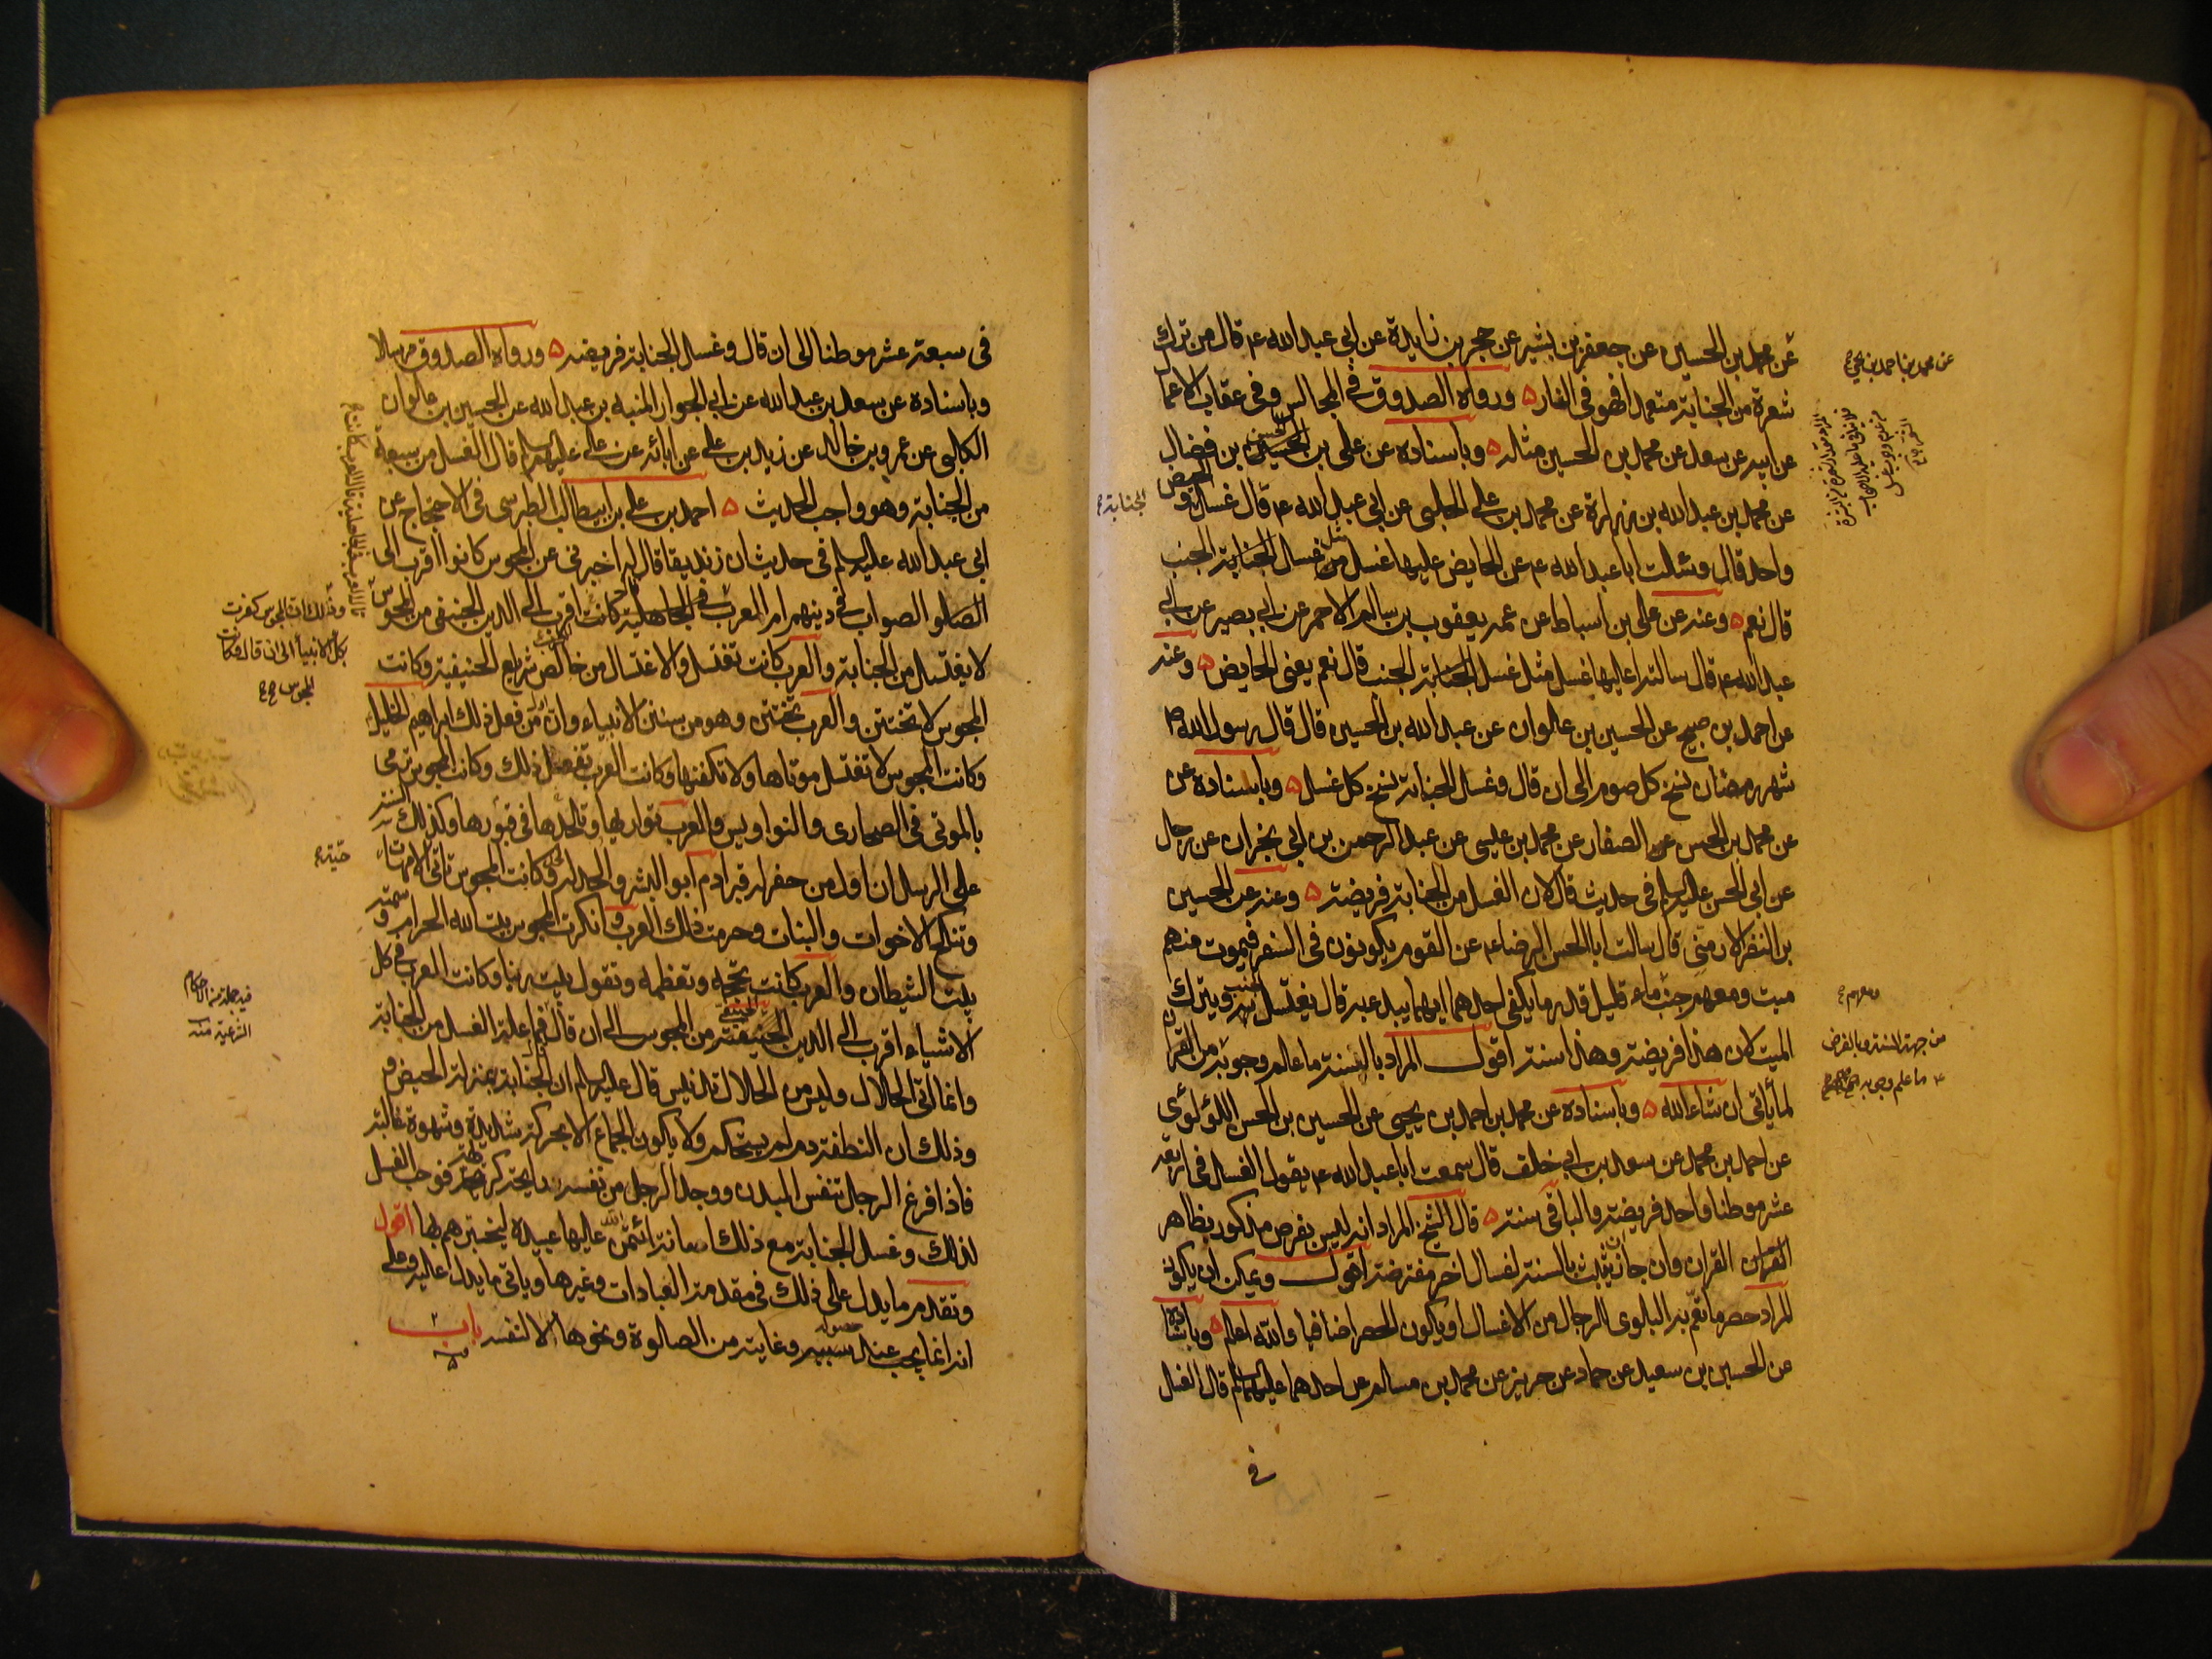 عن محمد بن الحسين عن جعفر بن بشير عن حجر بن زايدة عن ابي عبد الله ع قال من ترك
شعرة من الجنابة متعمدا فهو في النار ورواه الصدوق في المجالس وفي عقاب الاعمال
عن ابيه عن سعد عن محمد بن الحسين مثله وباسناده عن علي بن الحسن بن فضال
عن محمد بن عبد الله بن زرارة عن محمد بن علي الحلبي عن ابي عبد الله ع قال غسل الحيض و
واحد قال وسئلت ابا عبد الله ع عن الحايض عليها غسل مثل غسل الجنب
قال نعم وعنه عن علي بن اسباط عن عمه يعقوب بن سالم الاحمر عن ابي بصير عن ابي
عبد الله ع قال سالته اعليها غسل مثل غسل الجنب قال نعم يعني الحايض وعنه
عن احمد بن صبيح عن الحسين بن علوان عن عبد الله بن الحسين قال قال رسول الله ص
شهر رمضان نسخ كل صوم الى ان قال وغسل الجنابة نسخ كل غسل وباسناده عن
عن محمد بن الحسن عن الصفار عن محمد بن عيسى عن عبد الرحمن بن ابي نجران عن رجل
عن ابي الحسن عليه السلم في حديث قال لان الغسل من الجنابة فريضة وعنه عن الحسين
بن النضر الارمني قال سالت ابا الحسن الرضا ع عن القوم يكونون في السفر فيموت منهم
ميت ومعهم جنب وماء قليل قدر ما يكفي احدهما ايهما يبدء به قال يغتسل الجنب ويترك
الميت لان هذا فريضة وهذا سنة اقول المراد بالسنة ما علم وجوبه من القران
لما ياتي ان شاء الله وباسناده عن محمد بن احمد بن يحيى عن الحسين بن الحسن اللؤلؤي
عن احمد بن محمد عن سعد بن ابي خلف قال سمعت ابا عبد الله ع يقول الغسل في اربعة
عشر موطنا واحد فريضة والباقي سنة قال الشيخ المراد انه ليس بفرض مذكور بظاهر
القران وان جاز ان تثبت بالسنة اغسال اخر مفترضة اقول ويمكن ان يكون
المراد حصر ما تعم به البلوى للرجال من الاغسال او يكون الحصر اضافيا والله اعلم وباسناده
عن الحسين بن سعيد عن حماد عن حريز عن محمد بن مسلم عن احدهما عليهما السلم قال الغسل
في
عن محمد بن احمد بن يحيى ح
الجنابة ح
ومعهم ح
من جهة السنة وبالفرض
ما علم وجوبه
في سبعة عشر موطنا الى ان قال وغسل الجنابة فريضة ورواه الصدوق مرسلا
وباسناده عن سعد بن عبد الله عن ابي الجوزا المنبه بن عبد الله عن الحسين بن علوان
الكلبي عن عمرو بن خالد عن زيد بن علي عن ابائه عن علي عليهم السلم قال الغسل من سبعة
من الجنابة وهو واجب الحديث احمد بن علي بن ابيطالب الطبرسي في الاحتجاج عن
ابي عبد الله عليه السلم في حديث ان زنديقا قال له اخبرني عن المجوس كانوا اقرب الى
الصواب في دينهم ام العرب في الجاهلية كانت اقرب الى الدين الحنيفي من المجوس
لا يغتسل من الجنابة والعرب كانت تغتسل والاغتسال من خالص شرايع الحنيفية وكانت
المجوس لا تختتن والعرب تختتن وهو من سنن الانبياء وان من فعل ذلك ابراهيم الخليل
وكانت المجوس لا تغتسل موتاها ولا تكفنها وكانت العرب تفعل ذلك وكانت المجوس ترمي
بالموتى في الصحارى والنواويس والعرب تواريها وتلحدها في قبورها وكذلك السنة
على الرسل ان اول من حفر له قبر ادم ابو البشر والحد له وكانت المجوس تاتي الامهات
وتنكح الاخوات والبنات وحرمت ذلك العرب وانكرت المجوس بيت الله الحرام وسمته
بيت الشيطان والعرب كانت تحجه وتعظمه وتقول بيت ربنا وكانت العرب في كل
الاشياء اقرب الى الدين الحنيفية من المجوس الى ان قال فما علة الغسل من الجنابة
وانما اتى الحلال وليس من الحلال تدنيس قال عليه السلم ان الجنابة بمنزلة الحيض و
وذلك ان النطفة دم لم يستحكم ولا يكون الجماع الا بحركة شديدة وشهوة غالبة
فاذا فرغ الرجل تنفس البدن ووجد الرجل من نفسه رايحة كريهة فوجب الغسل
لذلك وغسل الجنابة مع ذلك امانة ائتمن الله عليها عبيده ليختبرهم بها اقول
وتقدم ما يدل على ذلك في مقدمة العبادات وغيرها وياتي ما يدل عليه وعلى
انه انما يجب عند حصول سببه وغايته من الصلوة ونحوها لا لنفسه باب
وذلك ان المجوس كفرت
بكل الانبياء الى ان قال وكانت
المجوس ح
فيه جملة من الاحكام
الشرعية منه